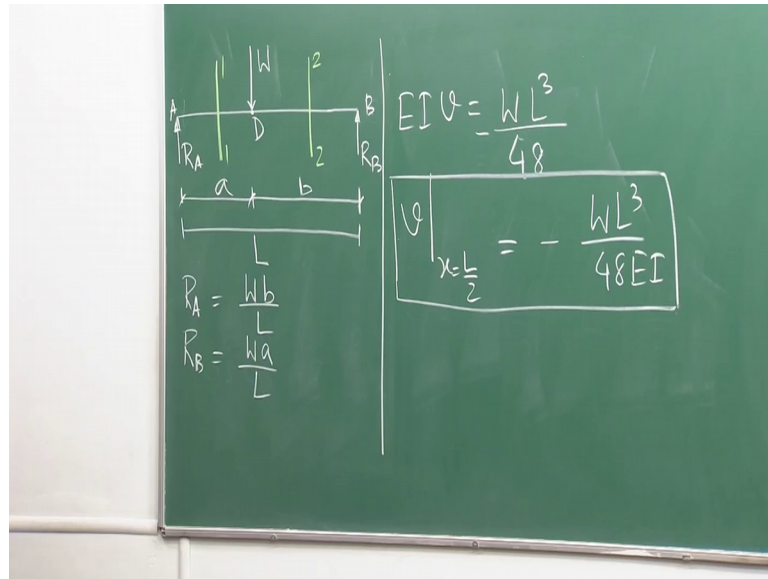 1 W 2
A D B
R_A 1 2 R_B
a b
L
R_A = Wb/L
R_B = Wa/L
EIυ = -WL³/48
υ|_{x=L/2} = - WL³/48EI